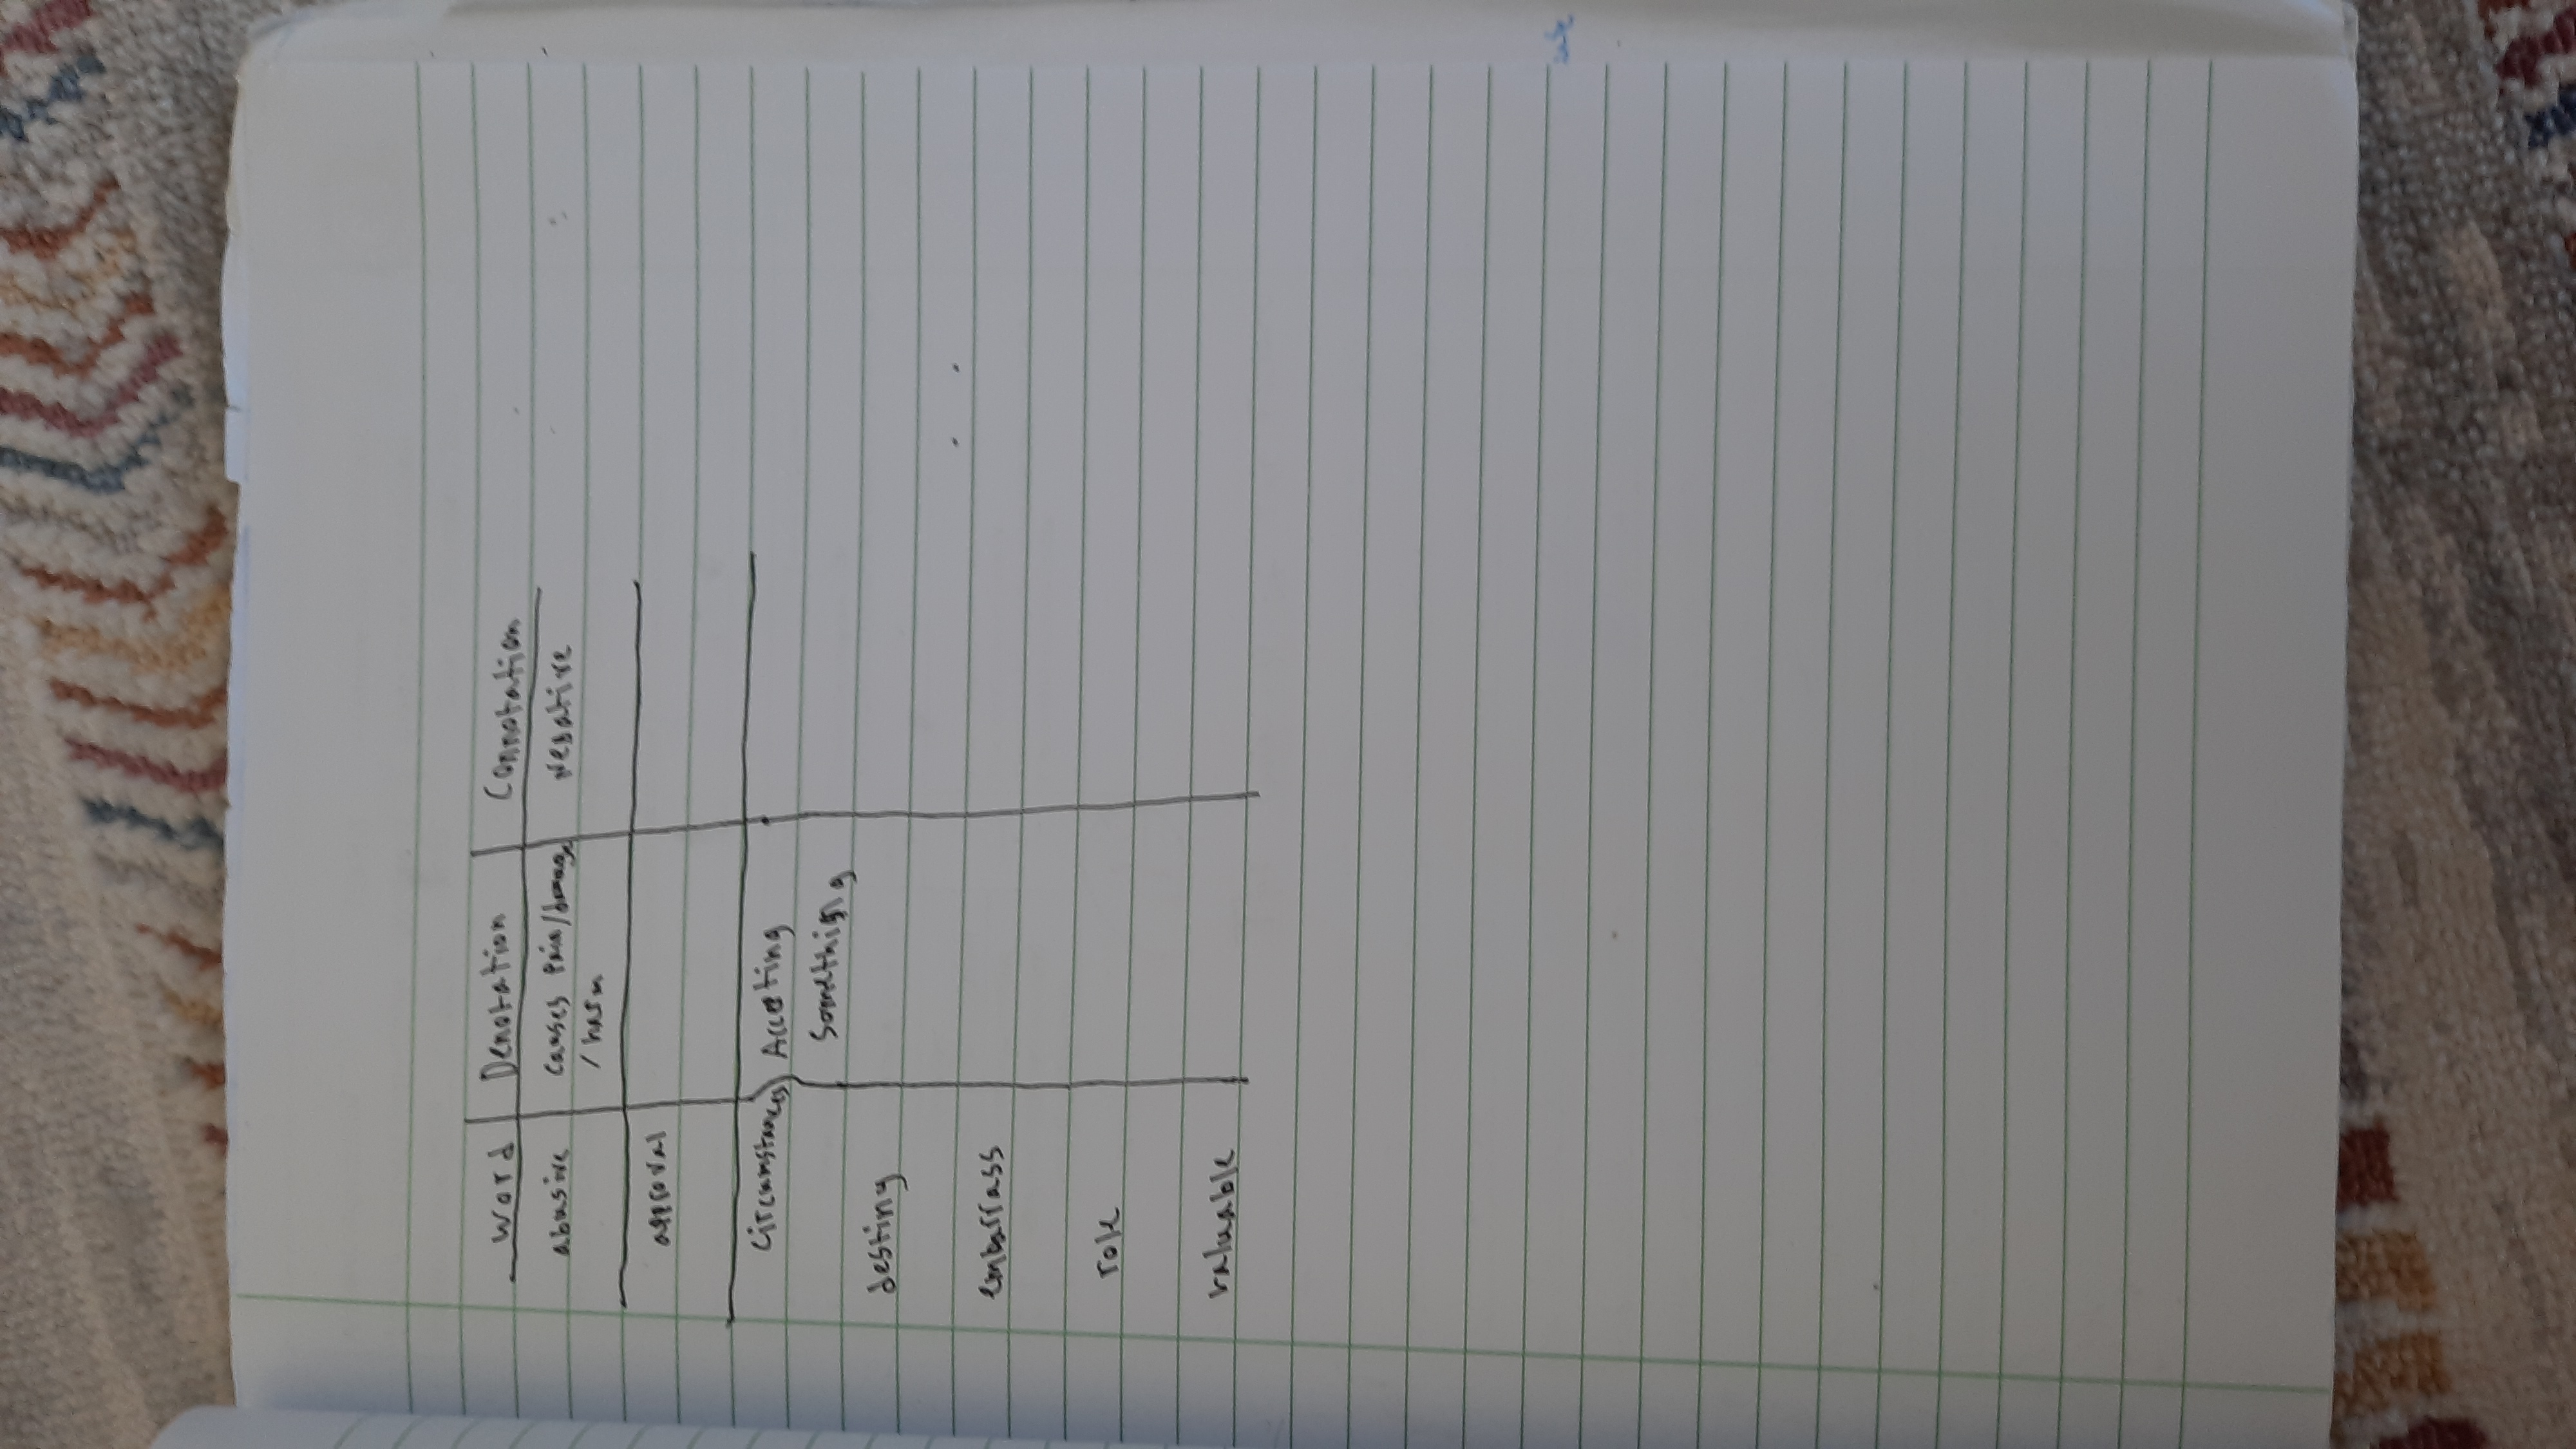 word Denotation Connotation
abusive causes Pain/damage Negative
/ harm
approval
circumstances Acceting
Something
destiny
embarrass
role
valuable